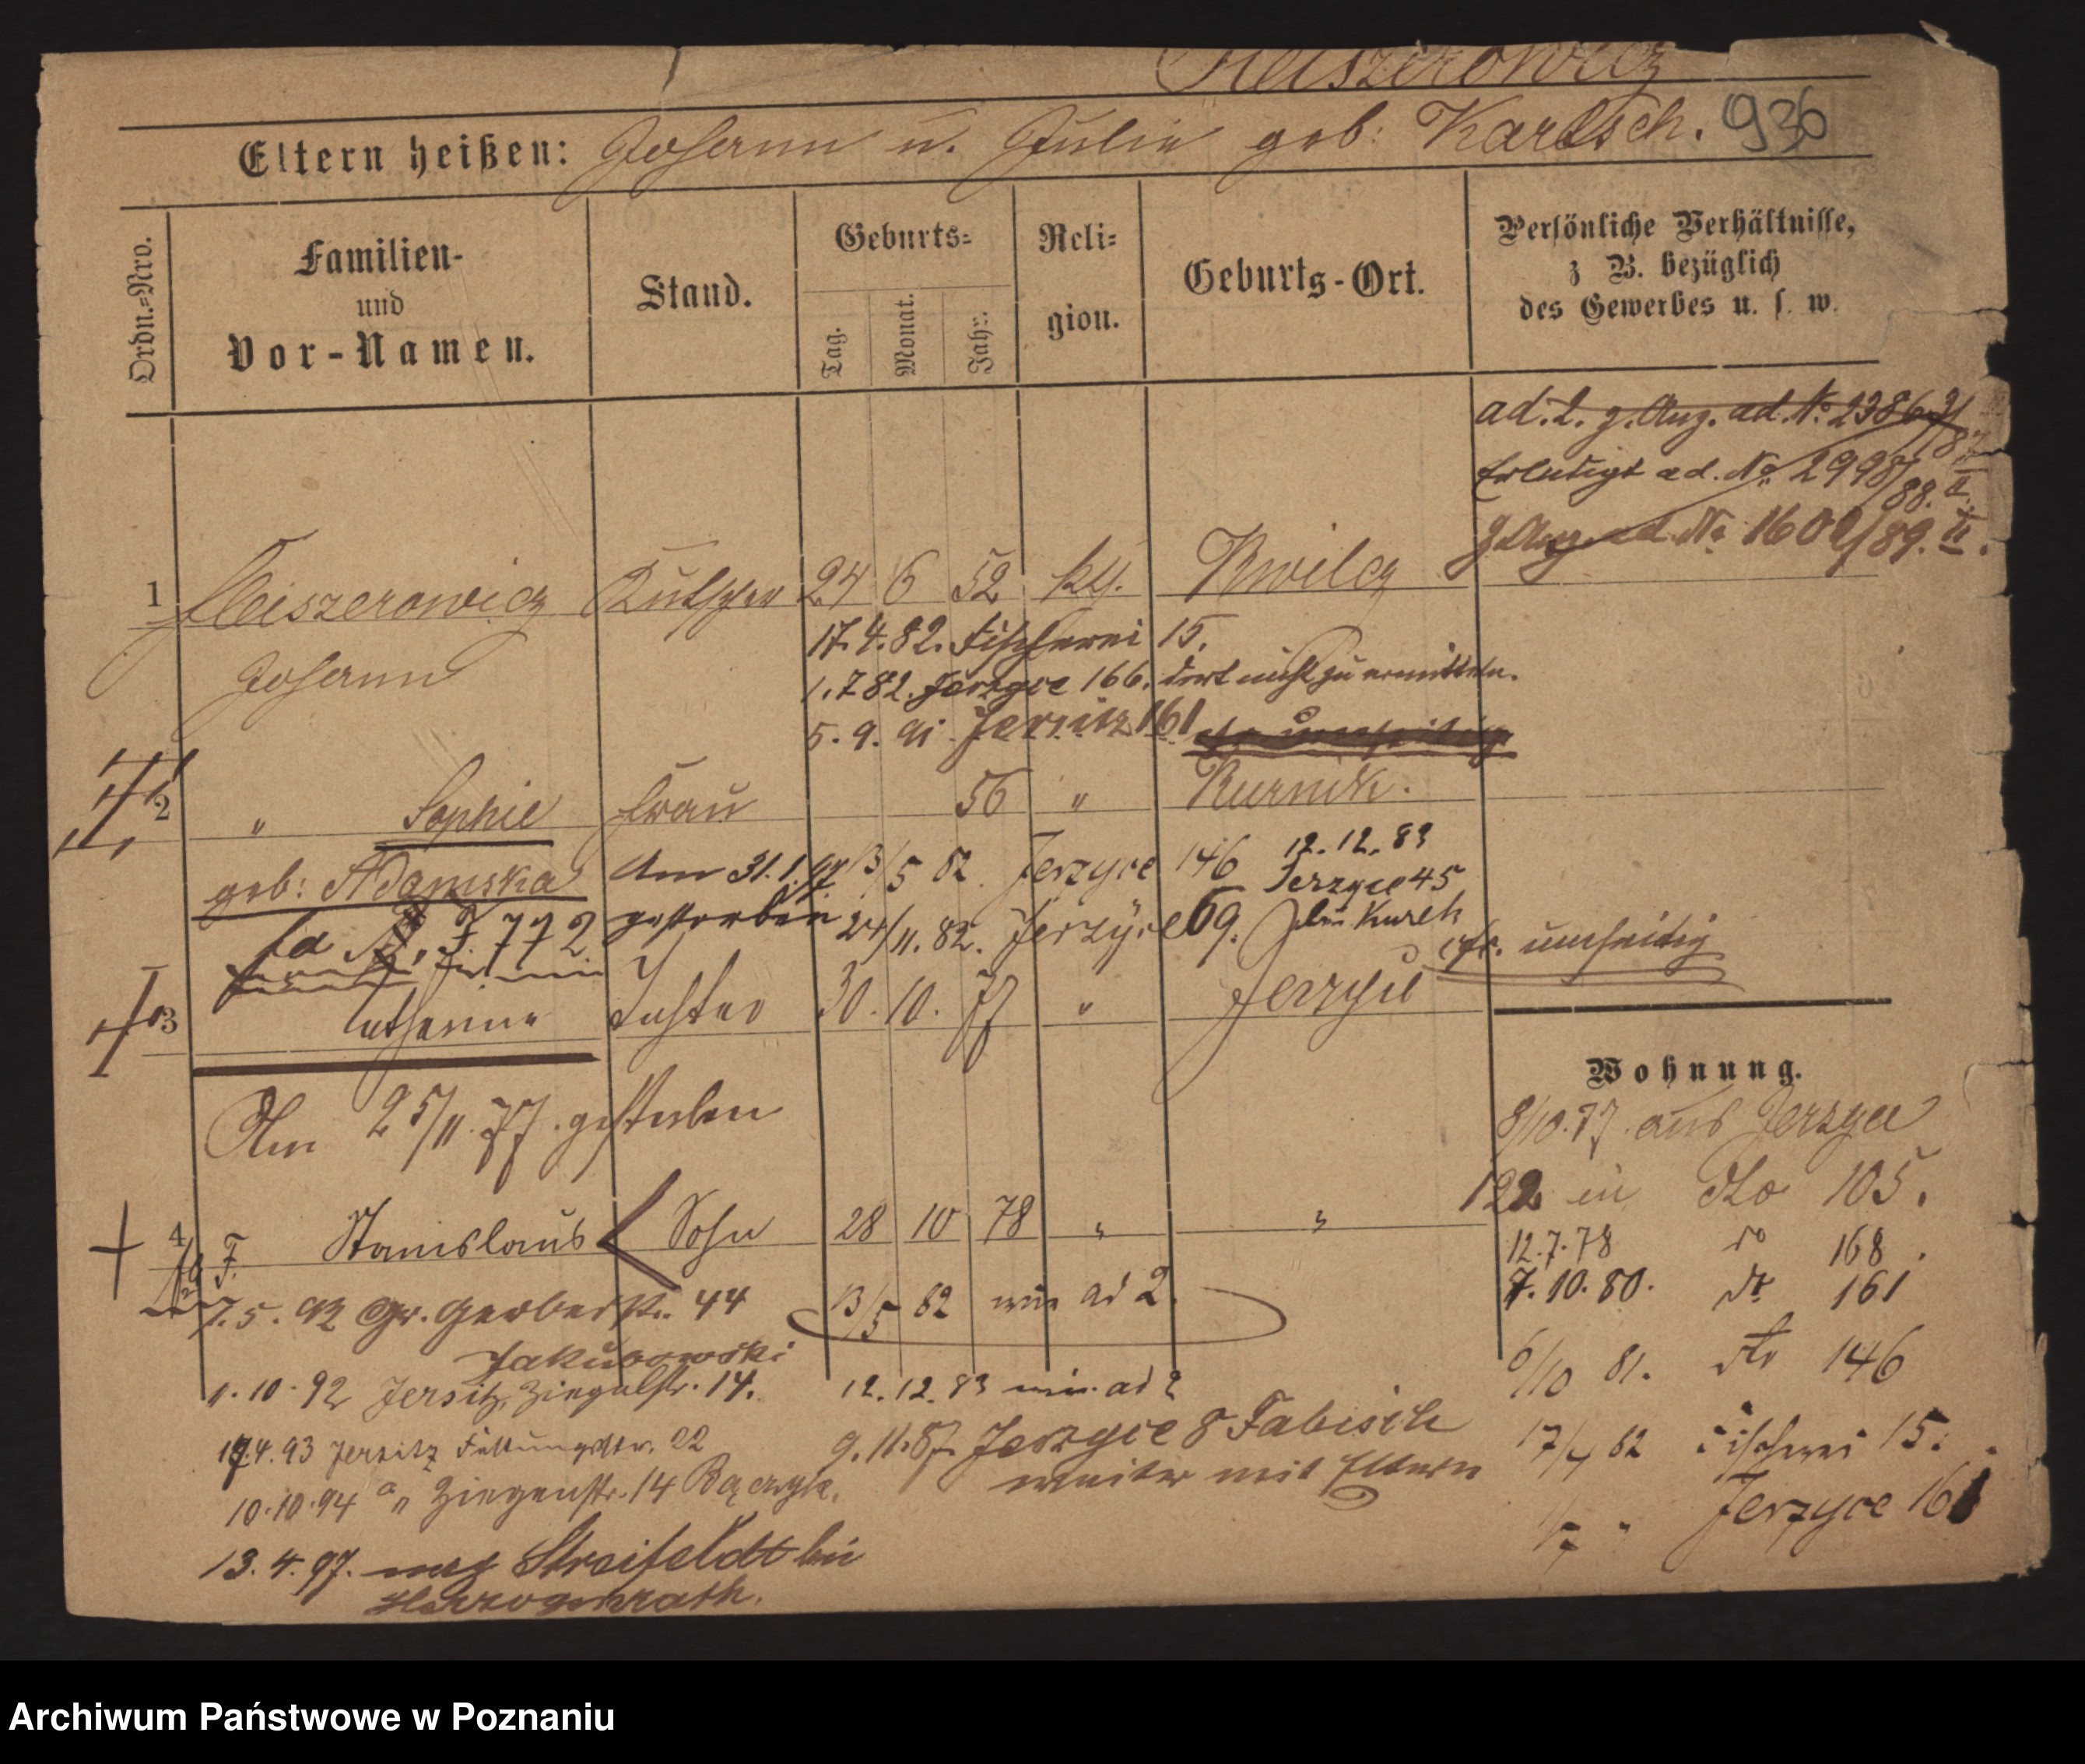 Eltern heißen: Johann u. Julie geb: Kartsch. 930
Ordn.=Nro.
Familien-
und
Vor-Namen.
Stand.
Geburts=
Tag.
Monat.
Jahr.
Reli=
gion.
Geburts-Ort.
Persönliche Verhältnisse,
z B. bezüglich
des Gewerbes u. s. w.
ad. No 2386
Erledigt ad. No. 2998/88. II.
ad No 1609/89. II.
1 Meiszerowicz Kutscher 24 6 52 kth. Kwilcz
Johann
17.4.82. Fischerei 15.
1.7 82. Jerzyce 166. dort nicht zu ermitteln.
5. 9. 91. Jersitz 161
2 " Sophie Frau 56 " Kurnik.
geb: Adamska Am 31.1.97 gestorben
13/5 82. Jerzyce 146
12.12.83
Jerzyce 45
24/11. 82. Jerzyce 69.
F. 772
cfr. umseitig
3 Catharina Tochter 30. 10. 77 " Jerzyce
Am 25/11. 77. gestorben
Wohnung.
8/10.77. aus Jerzyce
122 in dto 105.
4 F. Stanislaus Sohn 28 10 78 " "
12.7.78 do 168.
7.10.80. dto 161
7.5. 92 Gr. Gerberstr. 44
Jakubowski
13/5 82 wie ad 2.
6/10 81. dto 146
1.10.92 Jersitz, Ziegelstr. 14.
12.12.83 wie ad 2
9.11.87. Jerzyce 8 Fabisch
weiter mit Eltern
17/4 82 Fischerei 15.
.4.93 Jersitz 22
10.10.94 " 14 Bączyk.
1/7 " Jerzyce 161
13.4.97. nach Streifeldt bei
Herzogenrath.
Archiwum Państwowe w Poznaniu